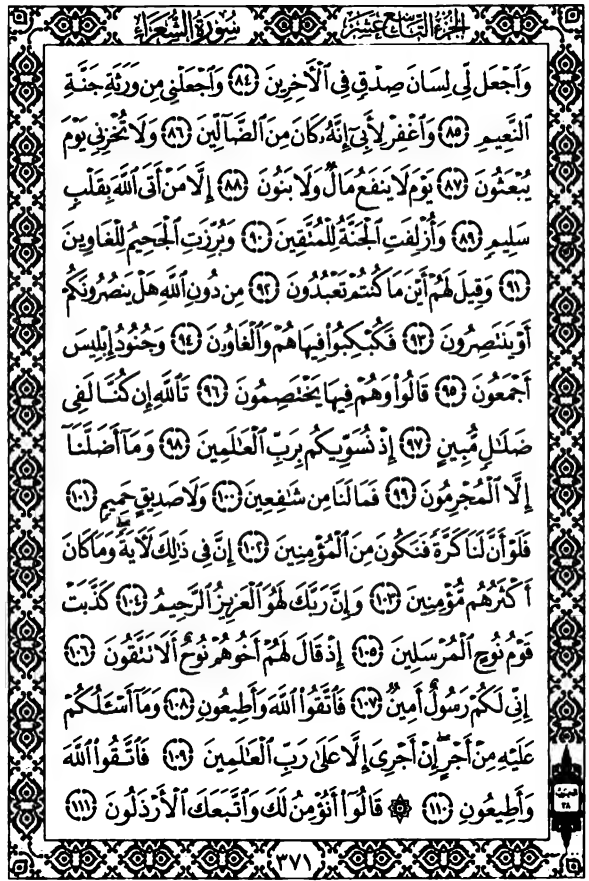 الجزء التاسع عشر
سورة الشعراء
وَٱجْعَل لِّى لِسَانَ صِدْقٍ فِى ٱلْءَاخِرِينَ ٨٤ وَٱجْعَلْنِى مِن وَرَثَةِ جَنَّةِ
ٱلنَّعِيمِ ٨٥ وَٱغْفِرْ لِأَبِىٓ إِنَّهُۥ كَانَ مِنَ ٱلضَّآلِّينَ ٨٦ وَلَا تُخْزِنِى يَوْمَ
يُبْعَثُونَ ٨٧ يَوْمَ لَا يَنفَعُ مَالٌ وَلَا بَنُونَ ٨٨ إِلَّا مَنْ أَتَى ٱللَّهَ بِقَلْبٍ
سَلِيمٍ ٨٩ وَأُزْلِفَتِ ٱلْجَنَّةُ لِلْمُتَّقِينَ ٩٠ وَبُرِّزَتِ ٱلْجَحِيمُ لِلْغَاوِينَ
٩١ وَقِيلَ لَهُمْ أَيْنَ مَا كُنتُمْ تَعْبُدُونَ ٩٢ مِن دُونِ ٱللَّهِ هَلْ يَنصُرُونَكُمْ
أَوْ يَنتَصِرُونَ ٩٣ فَكُبْكِبُوا۟ فِيهَا هُمْ وَٱلْغَاوُۥنَ ٩٤ وَجُنُودُ إِبْلِيسَ
أَجْمَعُونَ ٩٥ قَالُوا۟ وَهُمْ فِيهَا يَخْتَصِمُونَ ٩٦ تَٱللَّهِ إِن كُنَّا لَفِى
ضَلَٰلٍ مُّبِينٍ ٩٧ إِذْ نُسَوِّيكُم بِرَبِّ ٱلْعَٰلَمِينَ ٩٨ وَمَآ أَضَلَّنَآ
إِلَّا ٱلْمُجْرِمُونَ ٩٩ فَمَا لَنَا مِن شَٰفِعِينَ ١٠٠ وَلَا صَدِيقٍ حَمِيمٍ ١٠١
فَلَوْ أَنَّ لَنَا كَرَّةً فَنَكُونَ مِنَ ٱلْمُؤْمِنِينَ ١٠٢ إِنَّ فِى ذَٰلِكَ لَءَايَةً ۖ وَمَا كَانَ
أَكْثَرُهُم مُّؤْمِنِينَ ١٠٣ وَإِنَّ رَبَّكَ لَهُوَ ٱلْعَزِيزُ ٱلرَّحِيمُ ١٠٤ كَذَّبَتْ
قَوْمُ نُوحٍ ٱلْمُرْسَلِينَ ١٠٥ إِذْ قَالَ لَهُمْ أَخُوهُمْ نُوحٌ أَلَا تَتَّقُونَ ١٠٦
إِنِّى لَكُمْ رَسُولٌ أَمِينٌ ١٠٧ فَٱتَّقُوا۟ ٱللَّهَ وَأَطِيعُونِ ١٠٨ وَمَآ أَسْـَٔلُكُمْ
عَلَيْهِ مِنْ أَجْرٍ ۖ إِنْ أَجْرِىَ إِلَّا عَلَىٰ رَبِّ ٱلْعَٰلَمِينَ ١٠٩ فَٱتَّقُوا۟ ٱللَّهَ
وَأَطِيعُونِ ١١٠ ۞ قَالُوٓا۟ أَنُؤْمِنُ لَكَ وَٱتَّبَعَكَ ٱلْأَرْذَلُونَ ١١١
٣٧١